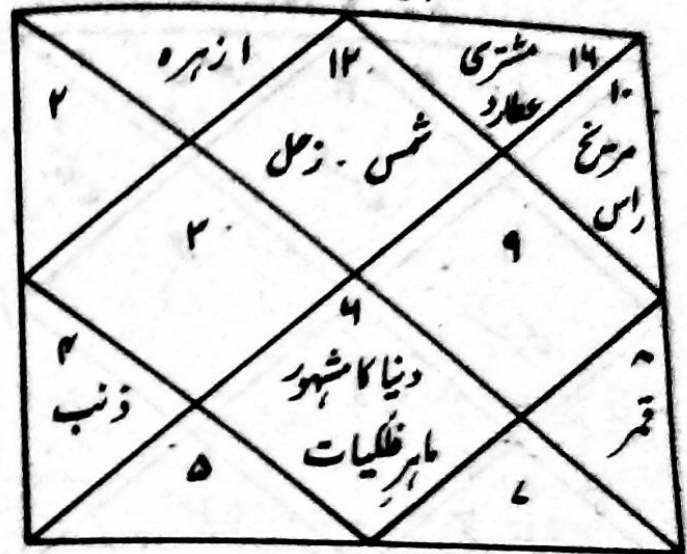 ۱ زہرہ
۱۲
شمس - زحل
مشتری ۱۱
عطارد
۱۰
مریخ
راس
۲
۳
۹
۴
ذنب
۶
دنیا کا مشہور
ماہرِ فلکیات
۸
قمر
۵
۷